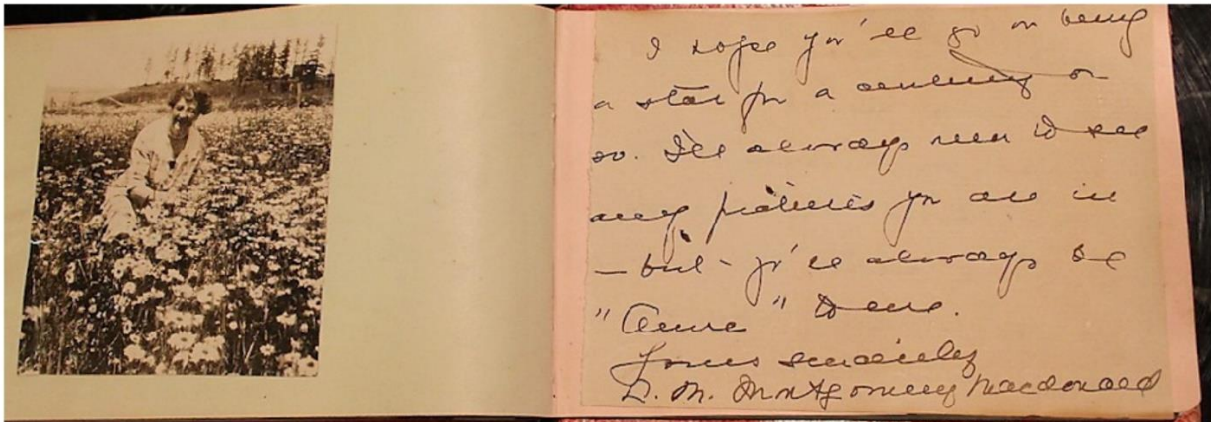 I hope you'll go on being
a star for a century or
so. I'll always run to see
any pictures you are in
– but – you'll always be
"Anne" to me.
Yours sincerely
L. M. Montgomery Macdonald